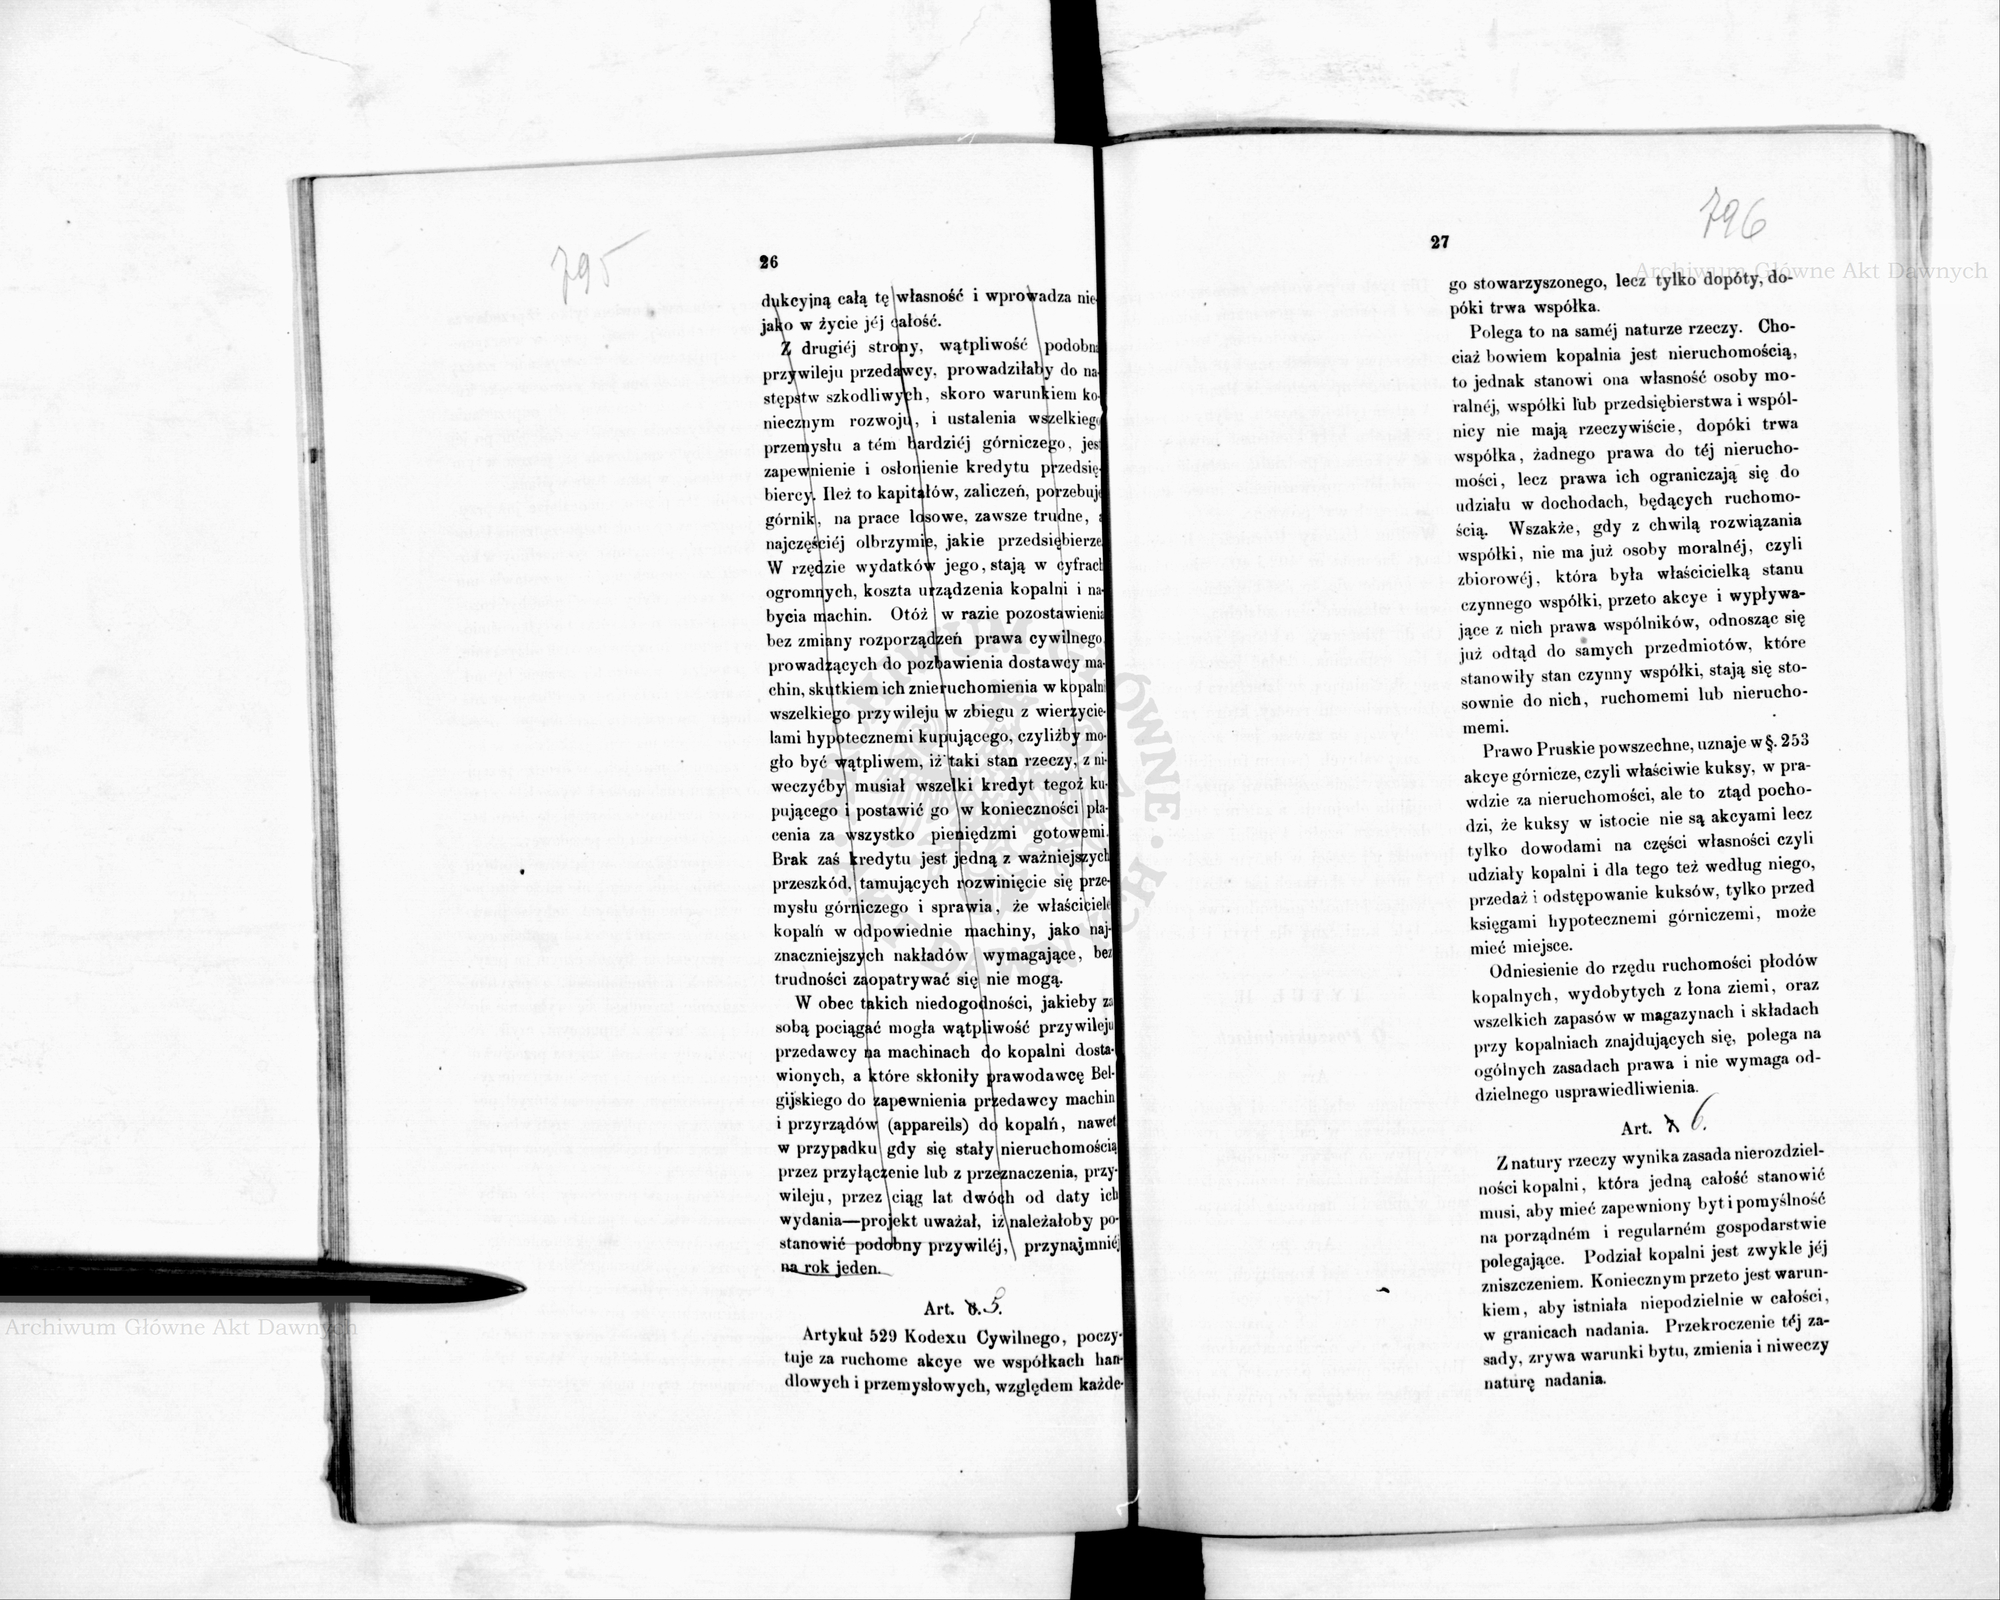 795
26
dukcyjną całą tę własność i wprowadza nie-
jako w życie jéj całość.
Z drugiéj strony, wątpliwość podobna
przywileju przedawcy, prowadziłaby do na-
stępstw szkodliwych, skoro warunkiem ko-
niecznym rozwoju, i ustalenia wszelkiego
przemysłu a tém bardziéj górniczego, jest
zapewnienie i osłonienie kredytu przedsię-
biercy. Ileż to kapitałów, zaliczeń, porzebuje
górnik, na prace losowe, zawsze trudne, a
najczęściéj olbrzymie, jakie przedsiębierze
W rzędzie wydatków jego, stają w cyfrach
ogromnych, koszta urządzenia kopalni i na-
bycia machin. Otóż w razie pozostawienia
bez zmiany rozporządzeń prawa cywilnego,
prowadzących do pozbawienia dostawcy ma-
chin, skutkiem ich znieruchomienia w kopalni
wszelkiego przywileju w zbiegu z wierzycie-
lami hypotecznemi kupującego, czyliżby mo-
gło być wątpliwem, iż taki stan rzeczy, z ni-
weczyćby musiał wszelki kredyt tegoż ku-
pującego i postawić go w konieczności pła-
cenia za wszystko pieniędzmi gotowemi.
Brak zaś kredytu jest jedną z ważniejszych
przeszkód, tamujących rozwinięcie się prze-
mysłu górniczego i sprawia, że właściciele
kopalń w odpowiednie machiny, jako naj-
znaczniejszych nakładów wymagające, bez
trudności zaopatrywać się nie mogą.
W obec takich niedogodności, jakieby za
sobą pociągać mogła wątpliwość przywileju
przedawcy na machinach do kopalni dosta-
wionych, a które skłoniły prawodawcę Bel-
gijskiego do zapewnienia przedawcy machin
i przyrządów (appareils) do kopalń, nawet
w przypadku gdy się stały nieruchomością
przez przyłączenie lub z przeznaczenia, przy-
wileju, przez ciąg lat dwóch od daty ich
wydania—projekt uważał, iż należałoby po-
stanowić podobny przywiléj, przynajmniéj
na rok jeden.
Art. 6. 5.
Artykuł 529 Kodexu Cywilnego, poczy-
tuje za ruchome akcye we współkach han-
dlowych i przemysłowych, względem każde-
796
27
go stowarzyszonego, lecz tylko dopóty, do-
póki trwa współka.
Polega to na saméj naturze rzeczy. Cho-
ciaż bowiem kopalnia jest nieruchomością,
to jednak stanowi ona własność osoby mo-
ralnéj, współki lub przedsiębierstwa i wspól-
nicy nie mają rzeczywiście, dopóki trwa
współka, żadnego prawa do téj nierucho-
mości, lecz prawa ich ograniczają się do
udziału w dochodach, będących ruchomo-
ścią. Wszakże, gdy z chwilą rozwiązania
współki, nie ma już osoby moralnéj, czyli
zbiorowéj, która była właścicielką stanu
czynnego współki, przeto akcye i wypływa-
jące z nich prawa wspólników, odnosząc się
już odtąd do samych przedmiotów, które
stanowiły stan czynny współki, stają się sto-
sownie do nich, ruchomemi lub nierucho-
memi.
Prawo Pruskie powszechne, uznaje w §. 253
akcye górnicze, czyli właściwie kuksy, w pra-
wdzie za nieruchomości, ale to ztąd pocho-
dzi, że kuksy w istocie nie są akcyami lecz
tylko dowodami na części własności czyli
udziały kopalni i dla tego też według niego,
przedaż i odstępowanie kuksów, tylko przed
księgami hypotecznemi górniczemi, może
mieć miejsce.
Odniesienie do rzędu ruchomości płodów
kopalnych, wydobytych z łona ziemi, oraz
wszelkich zapasów w magazynach i składach
przy kopalniach znajdujących się, polega na
ogólnych zasadach prawa i nie wymaga od-
dzielnego usprawiedliwienia.
Art. 7 6.
Z natury rzeczy wynika zasada nierozdziel-
ności kopalni, która jedną całość stanowić
musi, aby mieć zapewniony byt i pomyślność
na porządném i regularném gospodarstwie
polegające. Podział kopalni jest zwykle jéj
zniszczeniem. Koniecznym przeto jest warun-
kiem, aby istniała niepodzielnie w całości,
w granicach nadania. Przekroczenie téj za-
sady, zrywa warunki bytu, zmienia i niweczy
naturę nadania.
Archiwum Główne Akt Dawnych
Archiwum Główne Akt Dawnych
ARCHIWUM GŁÓWNE AKT DAWNYCH